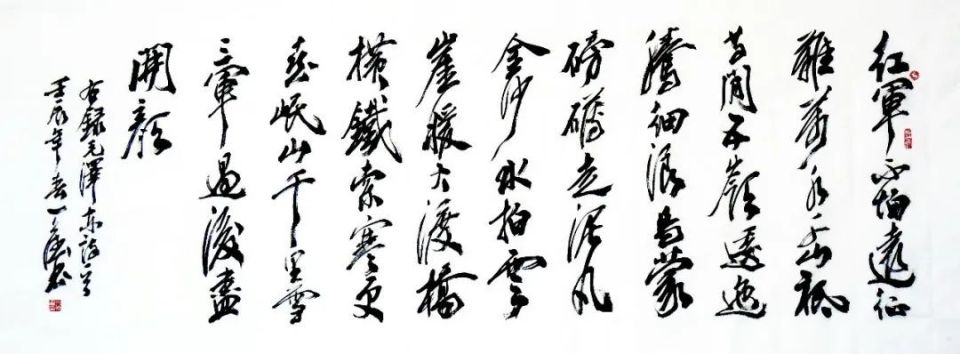 红軍不怕遠征
難萬水千山祗
等閒五嶺逶迤
騰細浪烏蒙
磅礴走泥丸
金沙水拍雲
崖暖大渡橋
横鐵索寒更
喜岷山千里雪
三軍過後盡
開顏
右録毛澤東詩一首
壬辰年春